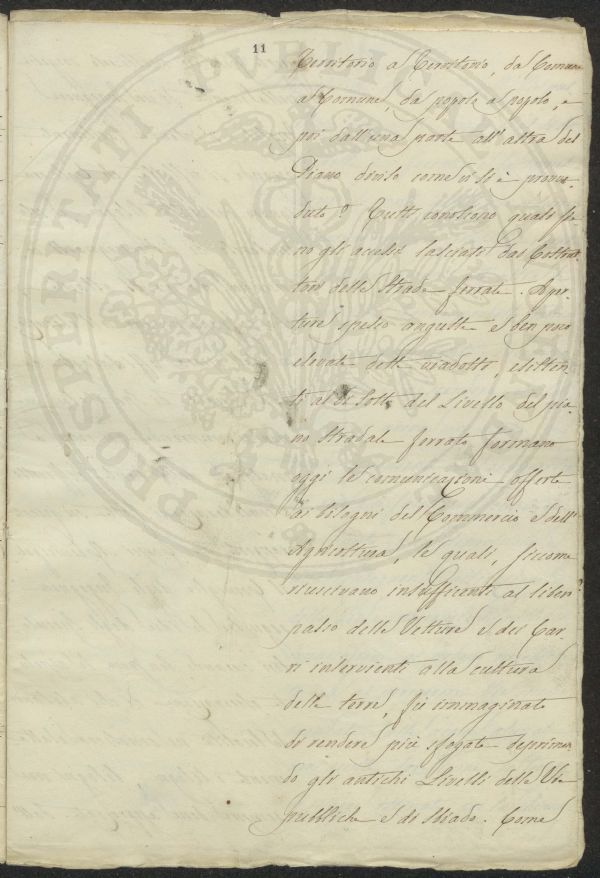 11
Territorio a Territorio, da Comune
a Comune, da popolo a popolo, e
poi dall'una parte all'altra del
Piano diviso come vi si è provve-
duto? Tutti conoscono quali sie-
no gli accessi lasciati dai Costrut-
tori delle Strade ferrate. Aper-
ture spesso anguste e ben poco
elevate dette viadotti, esisten-
ti al di sotto del Livello del pia-
no stradale ferrato formano
oggi le comunicazioni offerte
ai bisogni del Commercio e dell'
Agricoltura, le quali, siccome
riuscivano insufficienti al liber°
passo delle Vetture e dei Car-
ri intervienti alla cultura
delle terre, fù immaginato
di rendere più sfogate deprimen-
do gli antichi Livelli delle Vie
pubbliche e di strado. Come
PROSPERITATI PVBLICAE